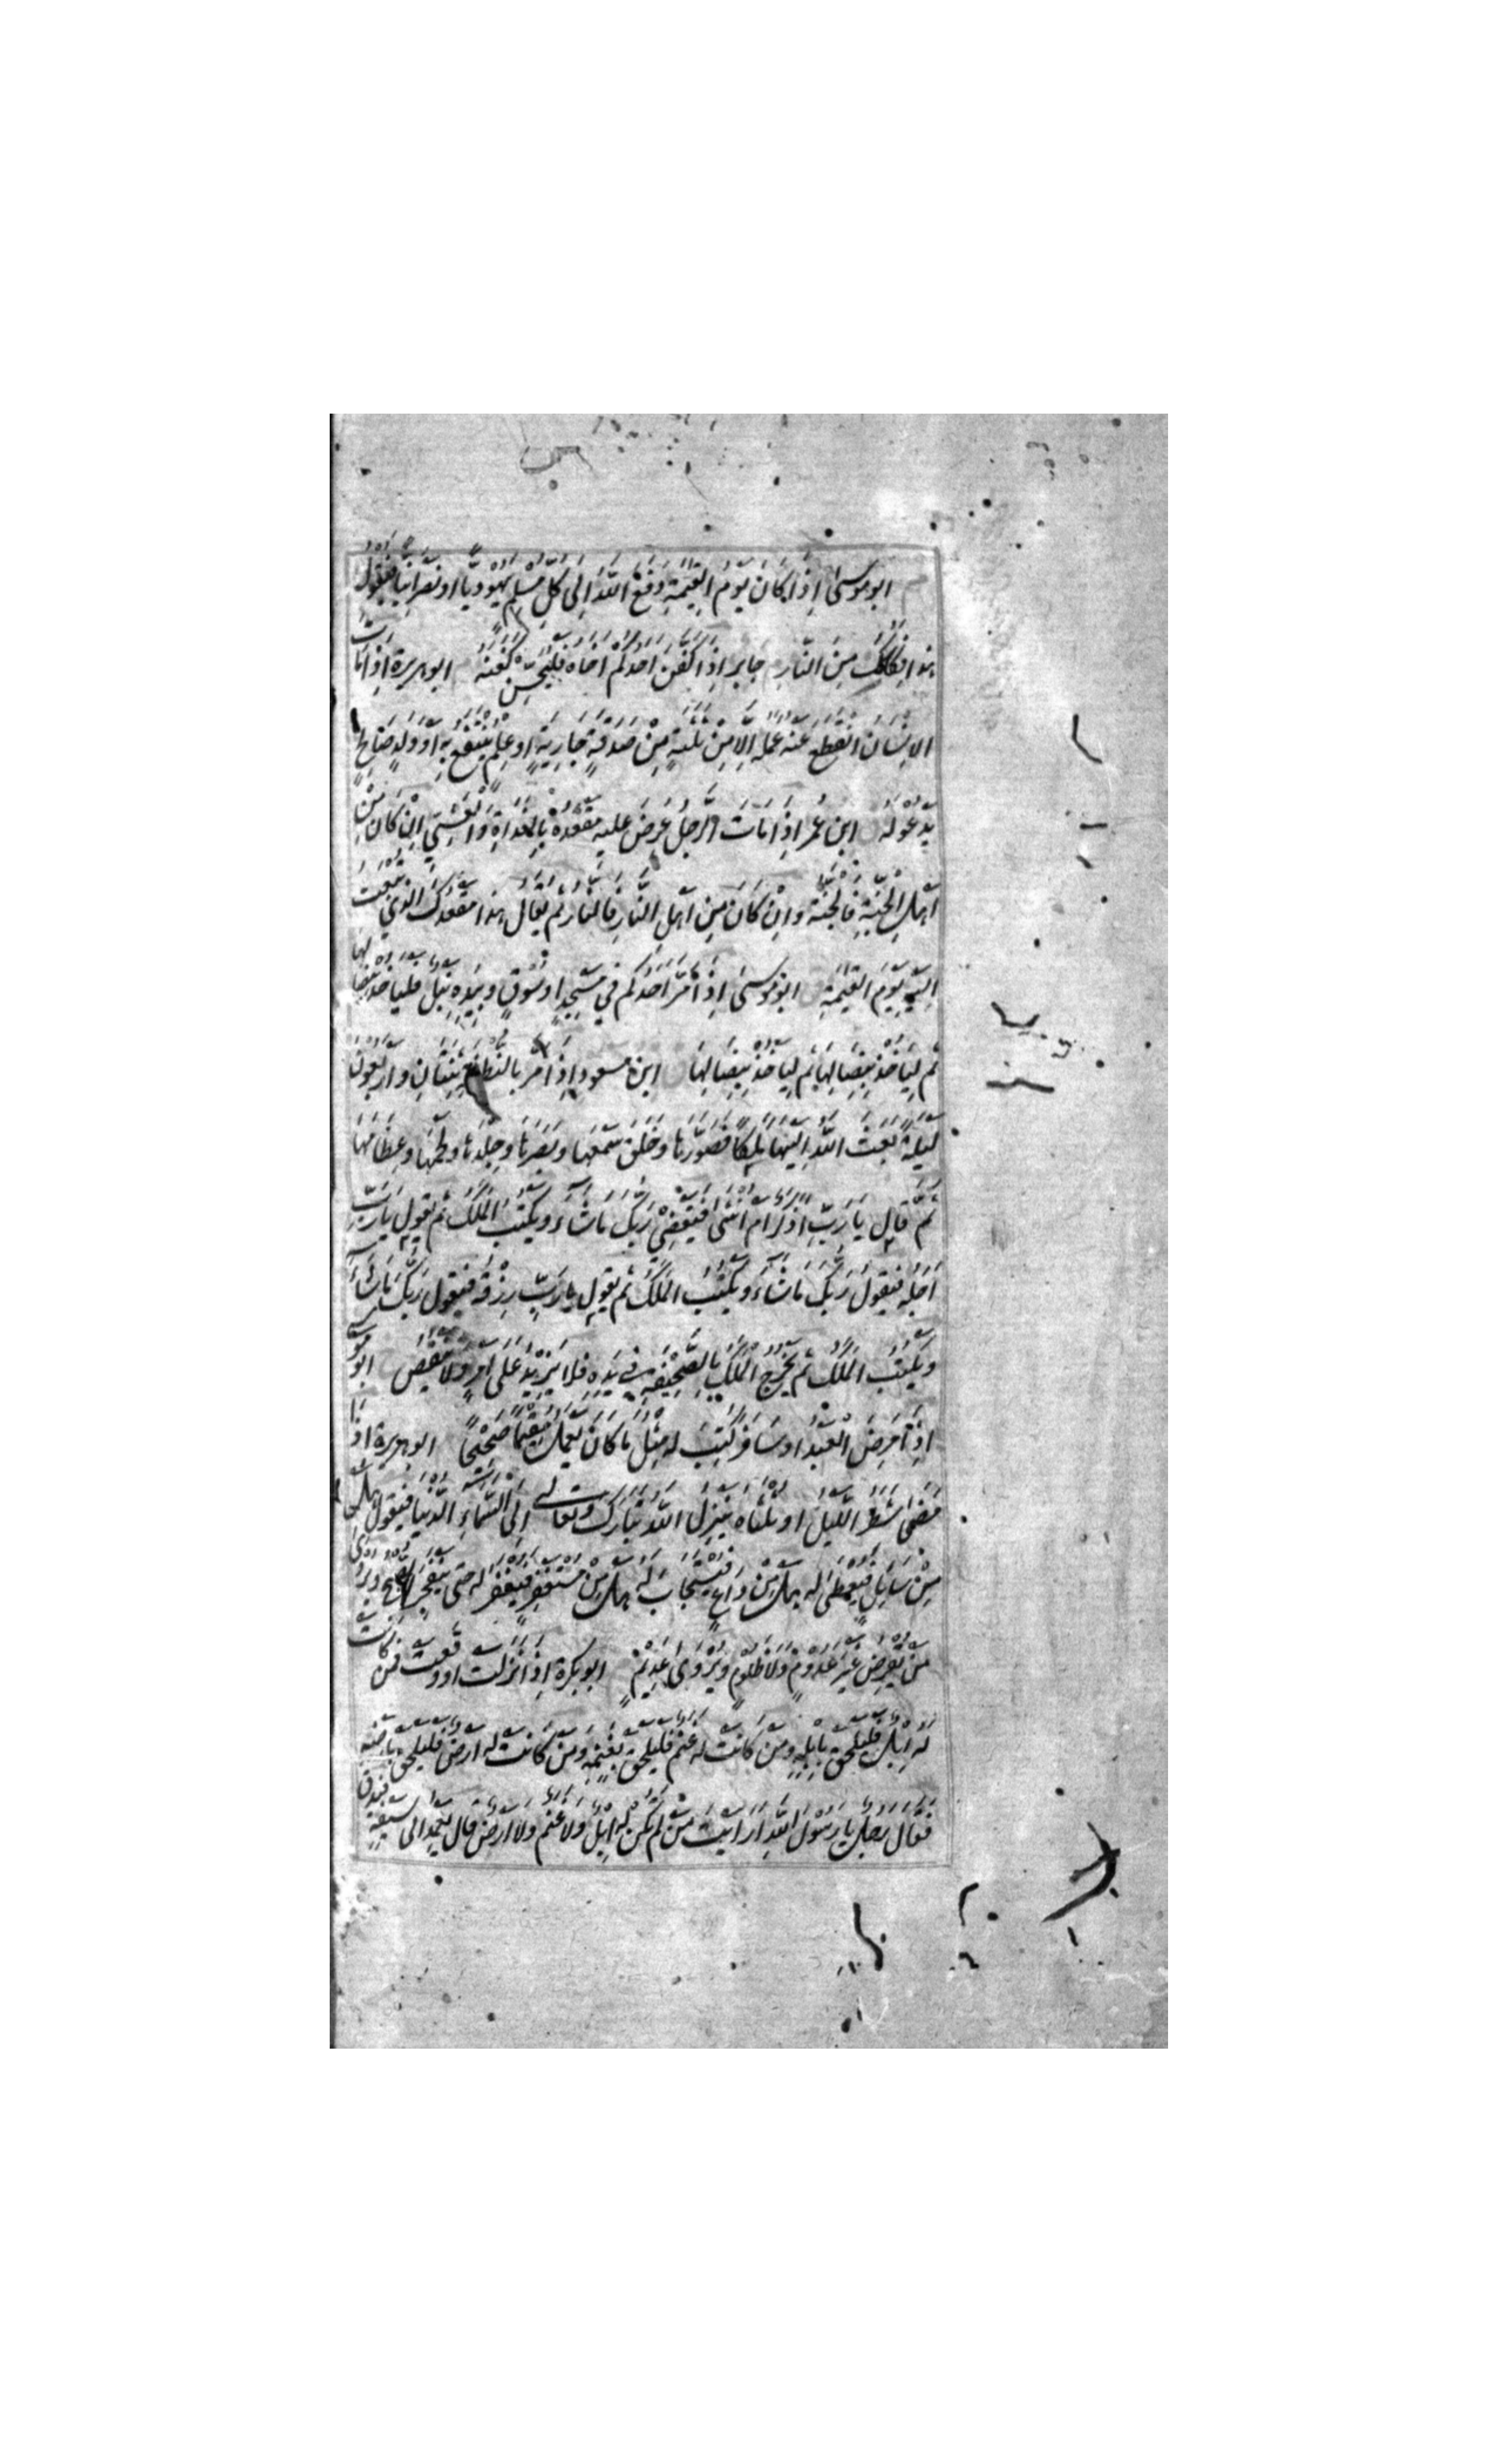 ابوموسى اِذَا كَانَ يَوْمُ الْقِيمَةِ دَفَعَ اللهُ اِلَى كُلِّ مُسْلِمٍ يَهُودِيًّا اَوْ نَصْرَانِيًّا فَيَقُولُ
هذا فِكَاكُكَ مِنَ النَّارِ جابر اِذَا كَفَّنَ اَحَدُكُمْ اَخَاهُ فَلْيُحَسِّنْ كَفَنَهُ ابوهريرة اِذَا مَاتَ
الاِنْسَانُ انْقَطَعَ عَنْهُ عَمَلُهُ اِلَّا مِنْ ثَلٰثَةٍ مِنْ صَدَقَةٍ جَارِيَةٍ اَوْ عِلْمٍ يُنْتَفَعُ بِهِ اَوْ وَلَدٍ صَالِحٍ
يَدْعُو لَهُ ابن عُمر اِذَا مَاتَ الرَّجُلُ عُرِضَ عَلَيْهِ مَقْعَدُهُ بِالْغَدَاةِ وَالْعَشِيِّ اِنْ كَانَ مِنْ
اَهْلِ الْجَنَّةِ فَالْجَنَّةُ وَاِنْ كَانَ مِنْ اَهْلِ النَّارِ فَالنَّارُ ثُمَّ يُقَالُ هذا مَقْعَدُكَ الَّذِي تُبْعَثُ
اِلَيْهِ يَوْمَ الْقِيمَةِ ابوموسى اِذَا مَرَّ اَحَدُكُمْ فِي مَسْجِدٍ اَوْ سُوقٍ وَبِيَدِهِ نَبْلٌ فَلْيَأْخُذْ بِنِصَالِهَا
ثُمَّ لِيَأْخُذْ بِنِصَالِهَا ثُمَّ لِيَأْخُذْ بِنِصَالِهَا ابن مسعود اِذَا مَرَّ بِالنُّطْفَةِ ثِنْتَانِ وَاَرْبَعُونَ
لَيْلَةً بَعَثَ اللهُ اِلَيْهَا مَلَكًا فَصَوَّرَهَا وَخَلَقَ سَمْعَهَا وَبَصَرَهَا وَجِلْدَهَا وَلَحْمَهَا وَعِظَامَهَا
ثُمَّ قَالَ يَا رَبِّ اَذَكَرٌ اَمْ اُنْثَى فَيَقْضِي رَبُّكَ مَا شَاءَ وَيَكْتُبُ الْمَلَكُ ثُمَّ يَقُولُ يَا رَبِّ
اَجَلُهُ فَيَقُولُ رَبُّكَ مَا شَاءَ وَيَكْتُبُ الْمَلَكُ ثُمَّ يَقُولُ يَا رَبِّ رِزْقُهُ فَيَقُولُ رَبُّكَ مَا شَاءَ
وَيَكْتُبُ الْمَلَكُ ثُمَّ يَخْرُجُ الْمَلَكُ بِالصَّحِيفَةِ فِي يَدِهِ فَلَا يَزِيدُ عَلَى اَمْرٍ وَلَا يَنْقُصُ ابوموسى
اِذَا مَرِضَ الْعَبْدُ اَوْ سَافَرَ كُتِبَ لَهُ مِثْلُ مَا كَانَ يَعْمَلُ مُقِيمًا صَحِيحًا ابوهريرة اِذَا
مَضَى شَطْرُ اللَّيْلِ اَوْ ثُلُثَاهُ يَنْزِلُ اللهُ تَبَارَكَ وَتَعَالَى اِلَى السَّمَاءِ الدُّنْيَا فَيَقُولُ هَلْ
مِنْ سَائِلٍ فَيُعْطَى لَهُ هَلْ مِنْ دَاعٍ فَيُسْتَجَابَ لَهُ هَلْ مِنْ مُسْتَغْفِرٍ فَيُغْفَرَ لَهُ حَتَّى يَنْفَجِرَ الصُّبْحُ وَيُرْوَى
مَنْ يُقْرِضُ غَيْرَ عَدُومٍ وَلَا ظَلُومٍ وَيُرْوَى عَدِيمٍ ابوبكرة اِذَا نَزَلَتْ اَوْ وَقَعَتْ فَمَنْ كَانَتْ
لَهُ اِبِلٌ فَلْيَلْحَقْ بِاِبِلِهِ وَمَنْ كَانَتْ لَهُ غَنَمٌ فَلْيَلْحَقْ بِغَنَمِهِ وَمَنْ كَانَتْ لَهُ اَرْضٌ فَلْيَلْحَقْ بِاَرْضِهِ
فَقَالَ رَجُلٌ يَا رَسُولَ اللهِ اَرَاَيْتَ مَنْ لَمْ تَكُنْ لَهُ اِبِلٌ وَلَا غَنَمٌ وَلَا اَرْضٌ قَالَ يَعْمِدُ اِلَى سَيْفِهِ فَيَدُقُّ